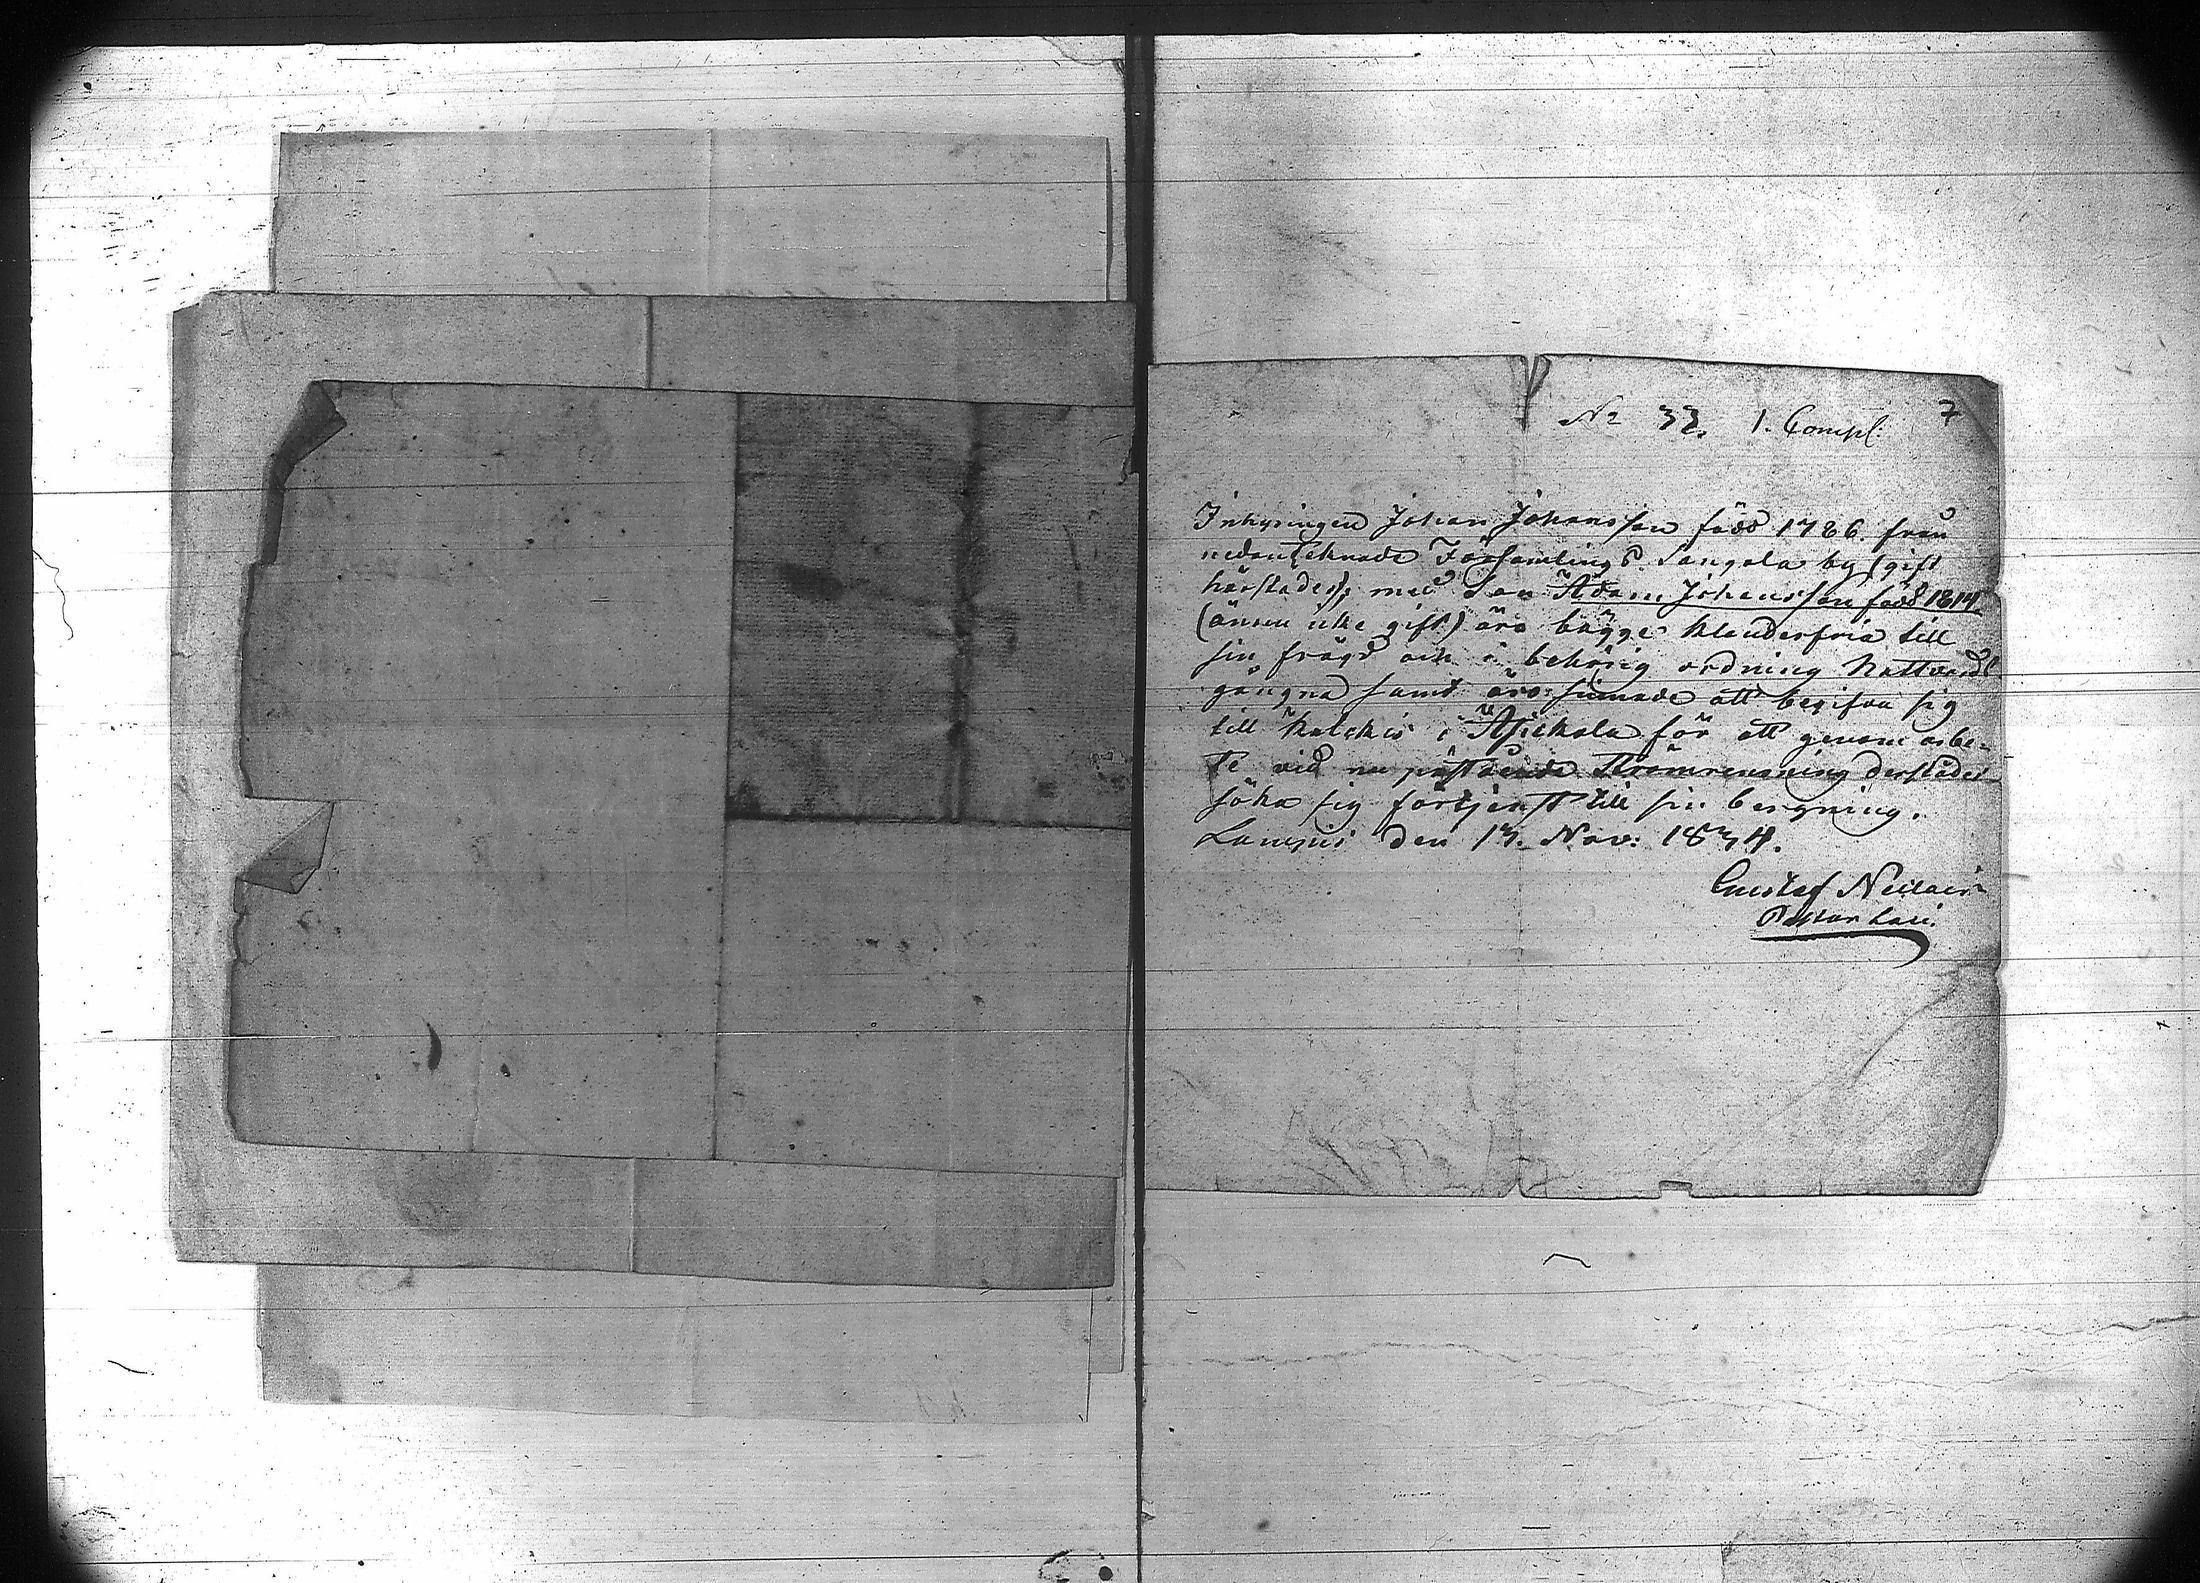 7
No 33. 1. Compl:
Inhysingen Johan Johansson född 1786. från
nedanteknade Församlings P. Sangala by (gift
härstädes), med Son Adam Johansson född 1814.
(ännu icke gift) äro bägge klanderfria till
sin frägd och i behörig ordning Nattvards
gångna samt äro sinnade att begifva sig
till Kalckis i Ahickala för att genom arbe-
te vid nu påstående Strömrensning derstädes
söka sig förtjenst till sin bergning.
Lampis den 13. Nov: 1834.
Gustaf
Pastor